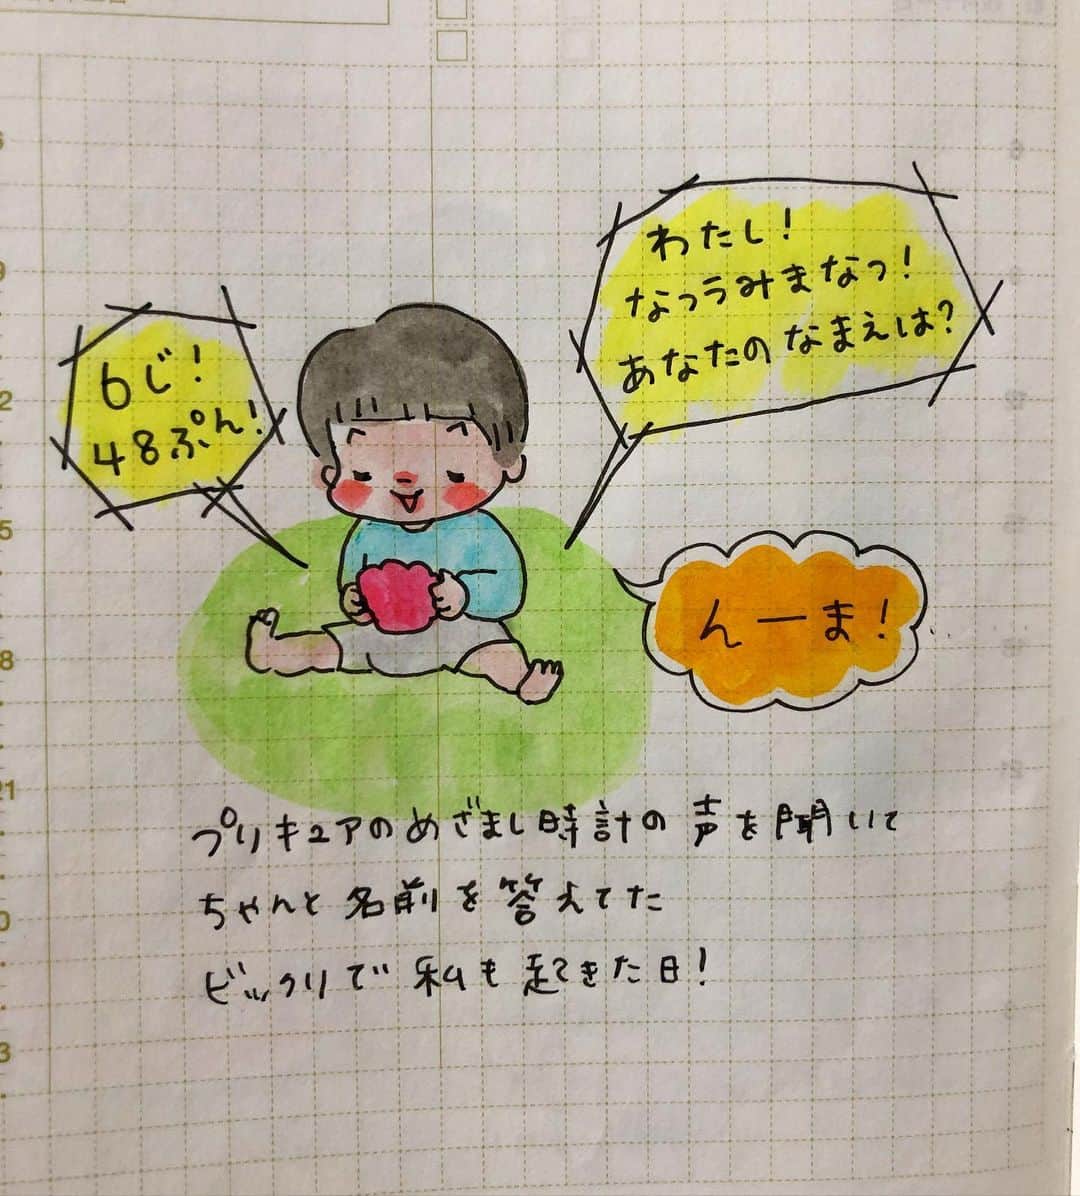 6じ！
48ぷん！
わたし！
なっうみまなっ！
あなたのなまえは？
んーま！
プリキュアのめざまし時計の声を聞いて
ちゃんと名前を答えてた
ビックリで私も起きた日！
9
2
5
8
21
0
3